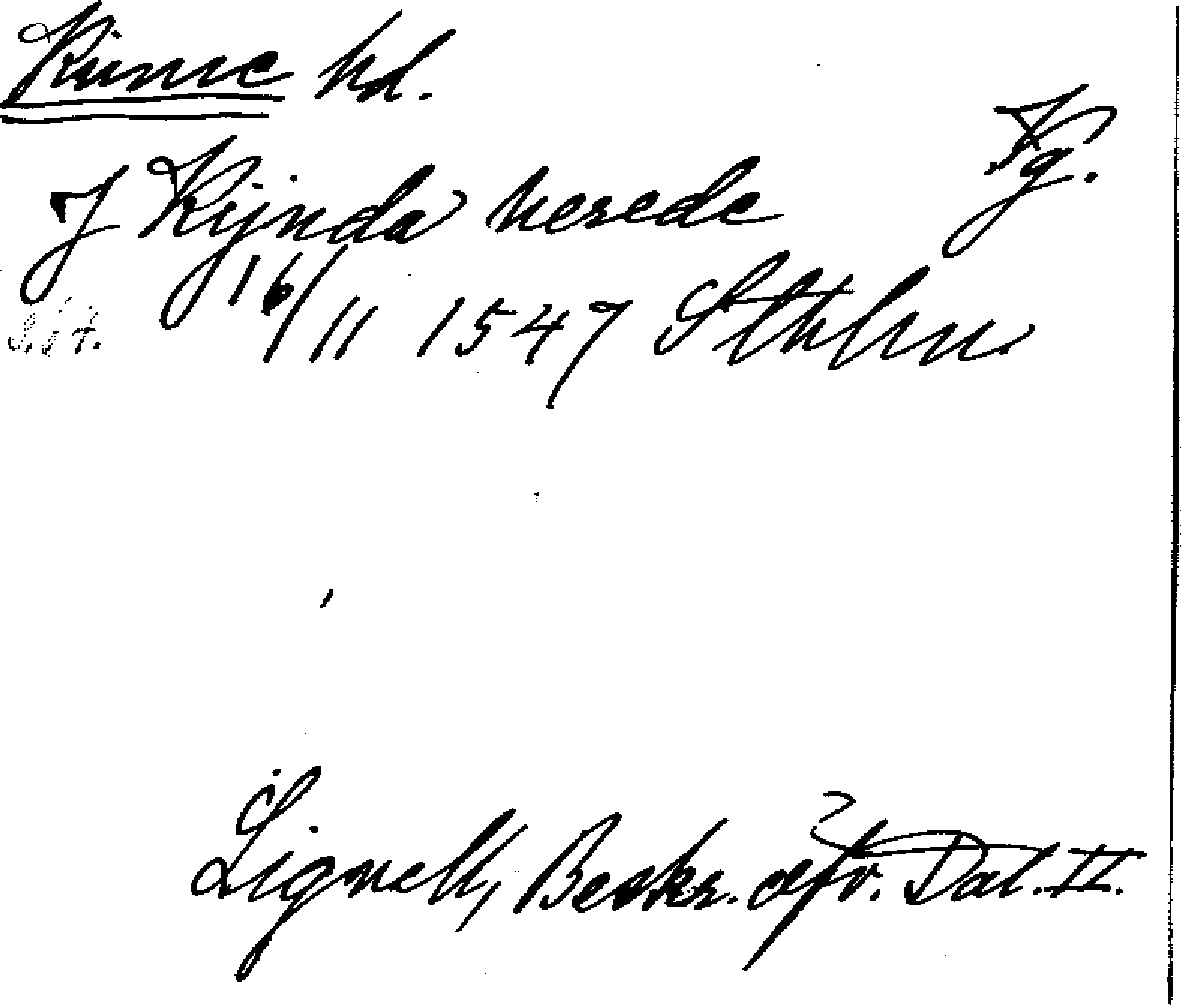 Kinne hd.
Vg.
J Kijnda herede
16/11 1547 Sthlm
Lignell, Beskr. öfv. Dal. II.